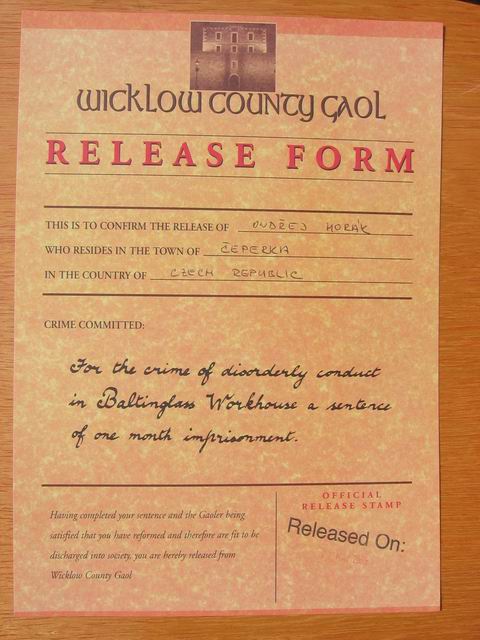 WICKLOW COUNTY GAOL
RELEASE FORM
THIS IS TO CONFIRM THE RELEASE OF ONDŘEJ HORÁK
WHO RESIDES IN THE TOWN OF ČEPERKA
IN THE COUNTRY OF CZECH REPUBLIC
CRIME COMMITTED:
For the crime of disorderly conduct
in Baltinglass Workhouse a sentence
of one month imprisonment.
Having completed your sentence and the Gaoler being
satisfied that you have reformed and therefore are fit to be
discharged into society, you are hereby released from
Wicklow County Gaol
OFFICIAL
RELEASE STAMP
Released On: